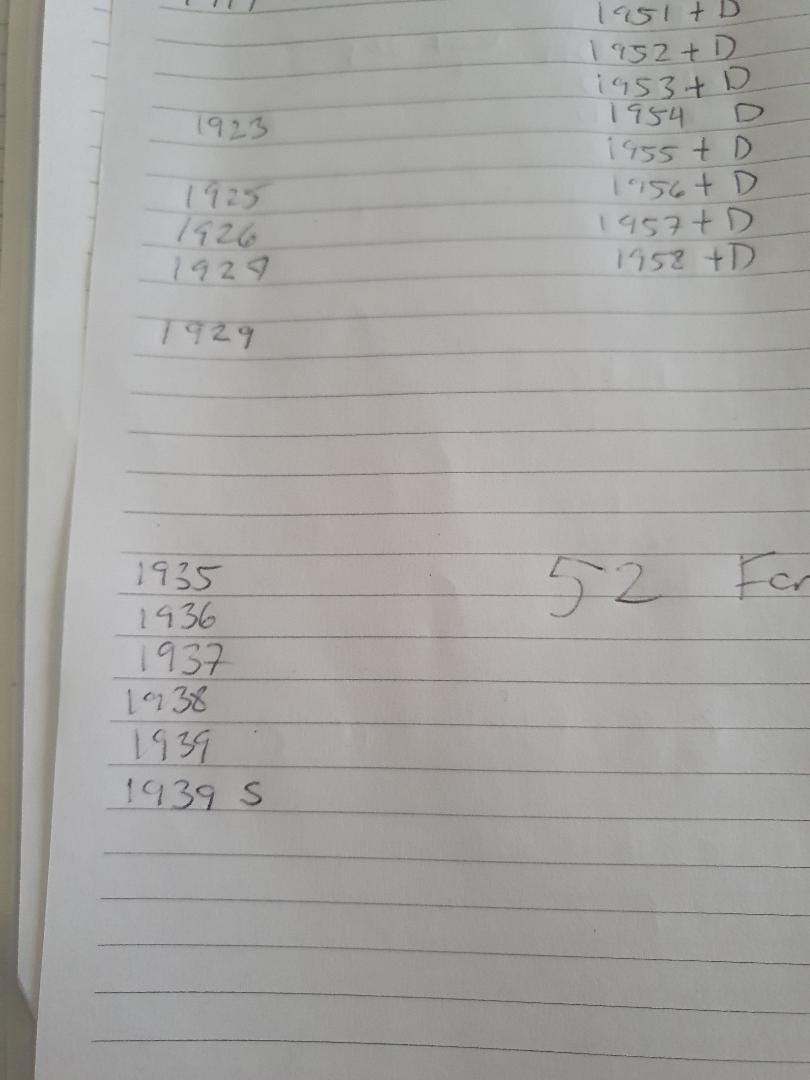 1951 + D
1952 + D
1953 + D
1954 D
1955 + D
1956 + D
1957 + D
1958 + D
1923
1925
1926
1929
52
1935
1936
1937
1938
1939
1939 S